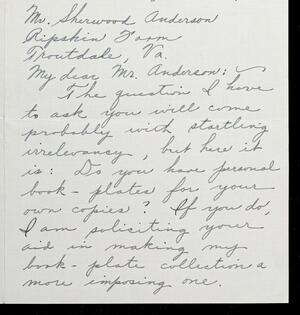 Mr. Sherwood Anderson
Ripskin Farm
Troutdale, Va.
My dear Mr. Anderson:
The question I have
to ask you will come
probably with startling
irrelevancy, but here it
is: Do you have personal
book-plates for your
own copies? If you do,
I am soliciting your
aid in making my
book-plate collection a
more imposing one.